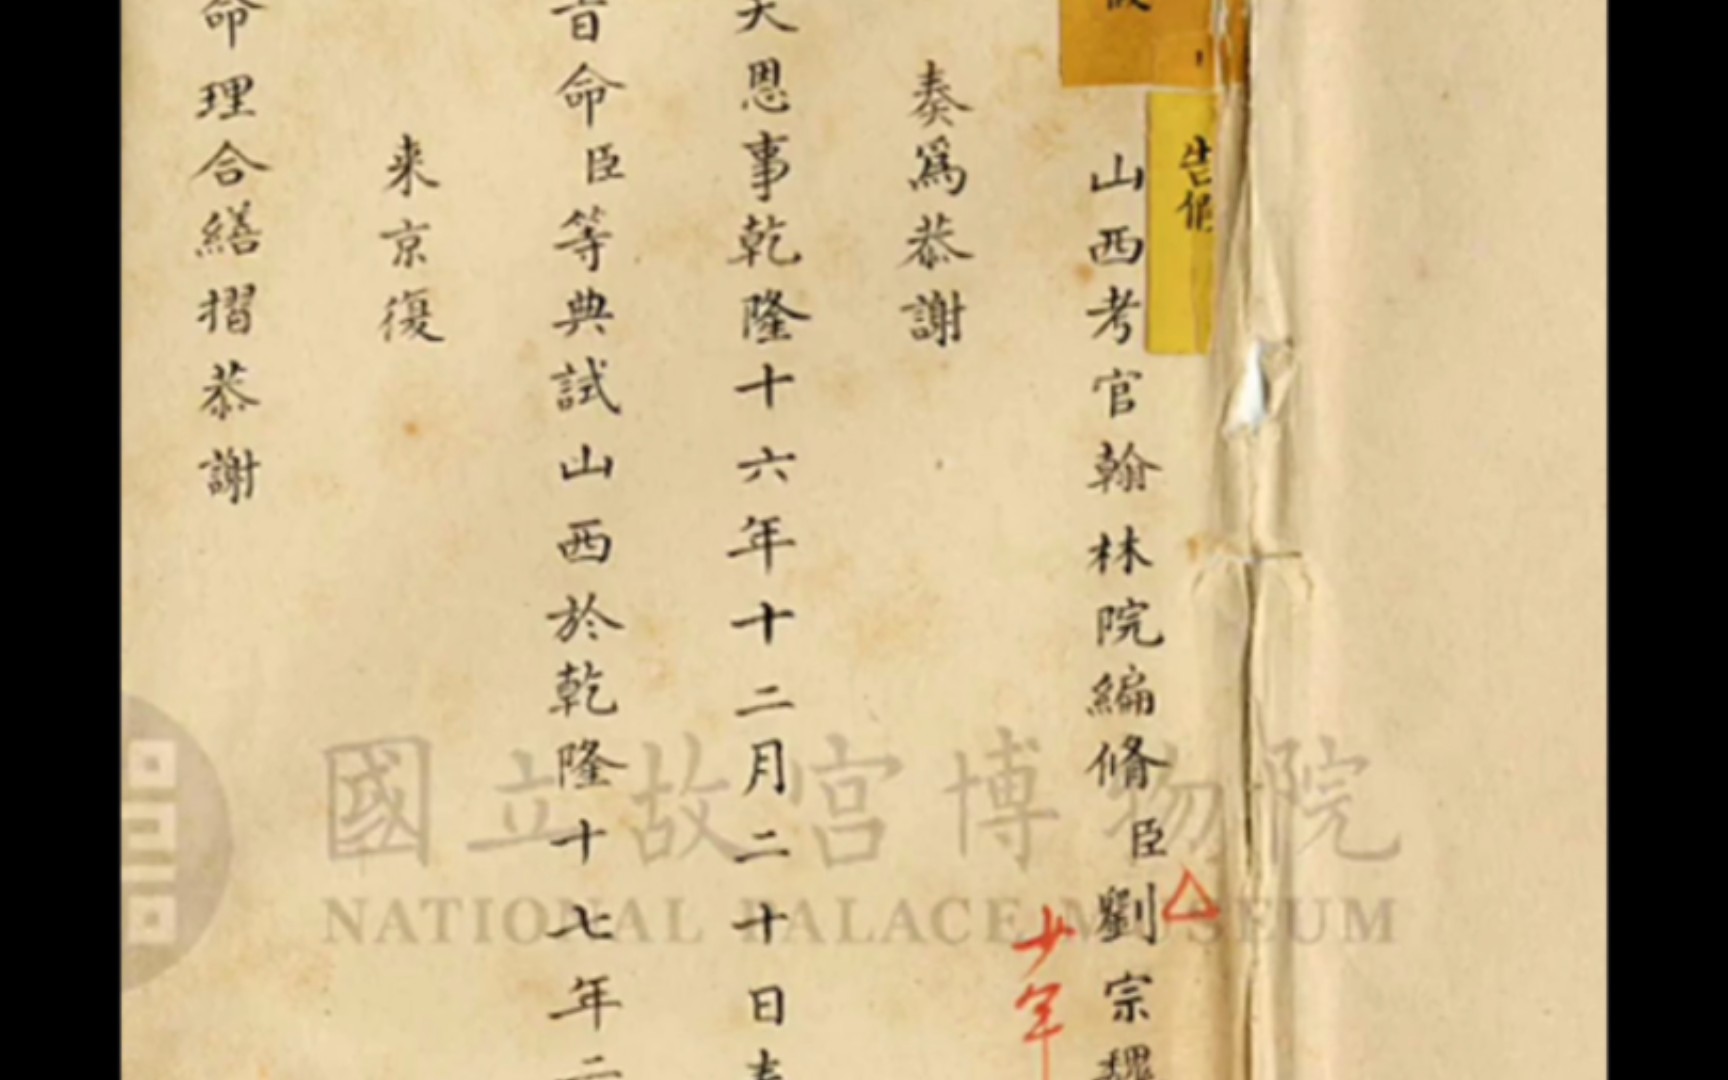 告假
山西考官翰林院編脩臣劉宗魏
少年
奏爲恭謝
天恩事乾隆十六年十二月二十日
旨命臣等典試山西於乾隆十七年二
来京復
命理合繕摺恭謝
國立故宮博物院
NATIONAL PALACE MUSEUM